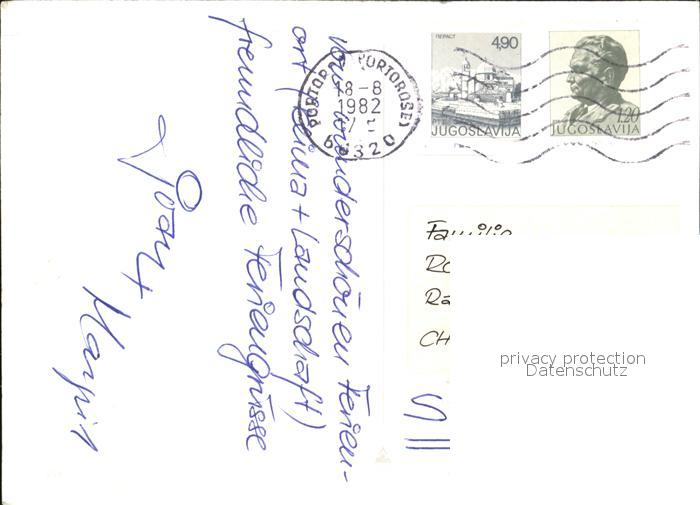 Vom wunderschönen Ferien-
ort (Klima + Landschaft)
freundliche Feriengrüsse
PORTOROŽ (PORTOROSE)
-8-8
1982
66320
4,90
JUGOSLAVIJA
1,20
JUGOSLAVIJA
Familie
CH
privacy protection
Datenschutz